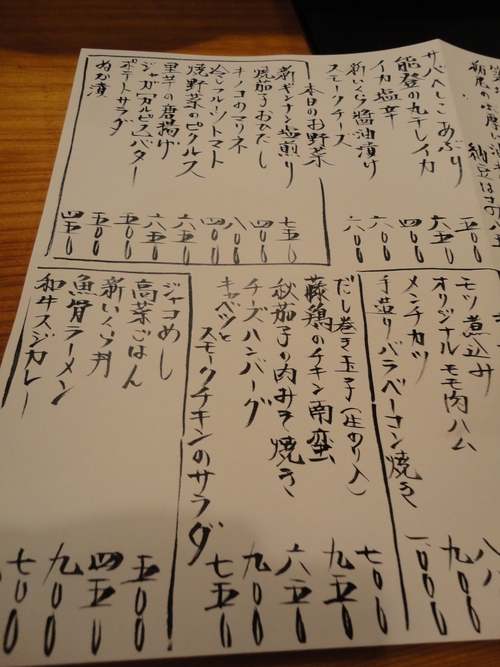 サバへしこ あぶり 五〇〇
能登の丸干しイカ 六五〇
イカ塩辛 四〇〇
新いくら醤油漬け 六〇〇
スモークチーズ 六〇〇
本日のお野菜
新ギンナン塩煎り 七五〇
焼茄子おひたし 四〇〇
キノコのマリネ 八〇〇
冷しフルーツトマト 四〇〇
焼野菜のピクルス 六五〇
里芋の唐揚げ 六五〇
ジャガピカルピスバター 五五〇
ポテトサラダ 五〇〇
ぬか漬 四五〇
モツ煮込み 八
オリジナルモモ肉ハム 九〇〇
メンチカツ
手造りバラベーコン焼き 一〇〇〇
だし巻き玉子(生のり入) 七〇〇
藤鶏のチキン南蛮 九五〇
秋茄子の肉みそ焼き 六五〇
チーズハンバーグ 九〇〇
キャベツと
スモークチキンのサラダ 七五〇
ジャコめし 五〇〇
高菜ごはん 四五〇
新いくら丼 九〇〇
魚骨ラーメン 七〇〇
和牛スジカレー